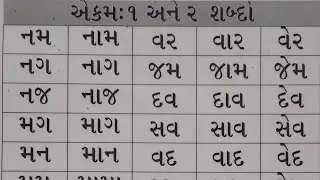 એકમઃ૧ અને ૨ શબ્દો
નમ નામ વર વાર વેર
નગ નાગ જમ જામ જેમ
નજ નાજ દવ દાવ દેવ
મગ માગ સવ સાવ સેવ
મન માન વદ વાદ વેદ